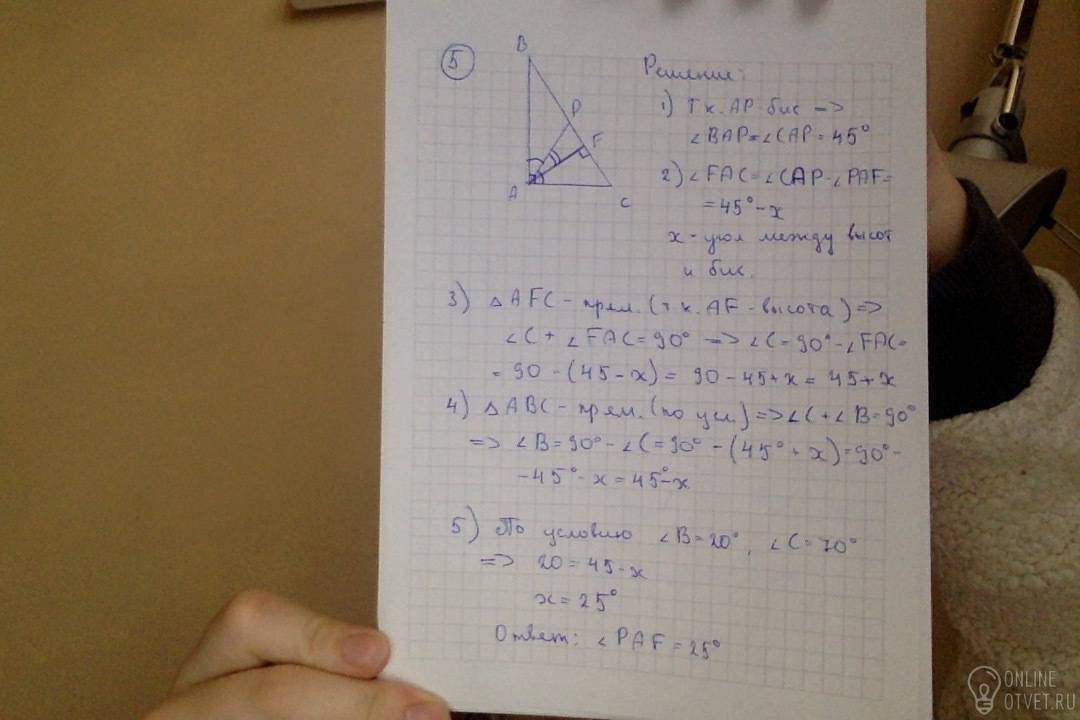 5
B
P
F
A
C
Решение:
1) Т.к. AP бис =>
∠BAP=∠CAP=45°
2) ∠FAC=∠CAP-∠PAF=
=45°-x
x - угол между высот
и бис.
3) △AFC - прям. (т.к. AF - высота) =>
∠C + ∠FAC=90° => ∠C=90°-∠FAC=
= 90 - (45-x) = 90-45+x = 45+x
4) △ABC - прям. (по усл.) => ∠C+∠B=90°
=> ∠B=90°-∠C=90°-(45°+x)=90°-
-45°-x=45°-x
5) По условию ∠B=20°, ∠C=70°
=> 20=45-x
x=25°
Ответ: ∠PAF=25°
ONLINE
OTVET.RU